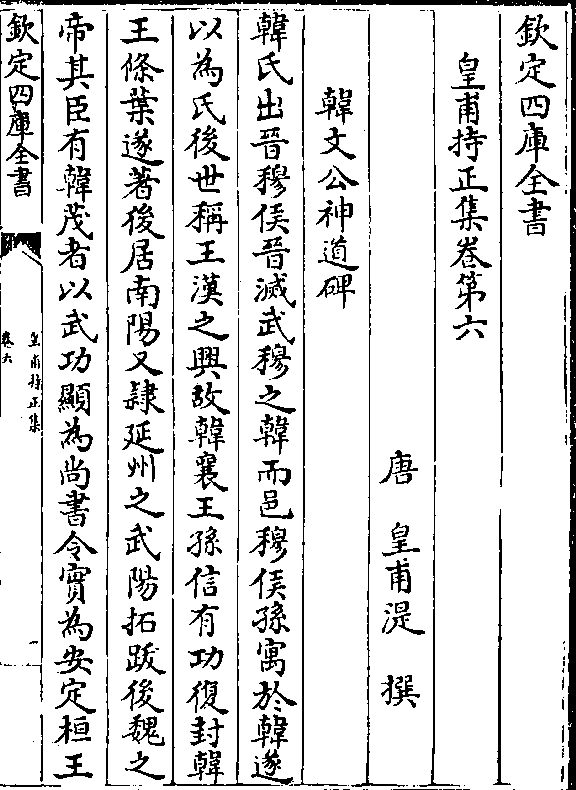 欽定四庫全書
皇甫持正集卷第六
唐 皇甫湜 撰
韓文公神道碑
韓氏出晉穆侯晉滅武穆之韓而邑穆侯孫寓於韓遂
以為氏後世稱王漢之興故韓襄王孫信有功復封韓
王條葉遂著後居南陽又隷延州之武陽拓跋後魏之
帝其臣有韓茂者以武功顯為尚書令實為安定桓王
欽定四庫全書
皇甫持正集
卷六
一